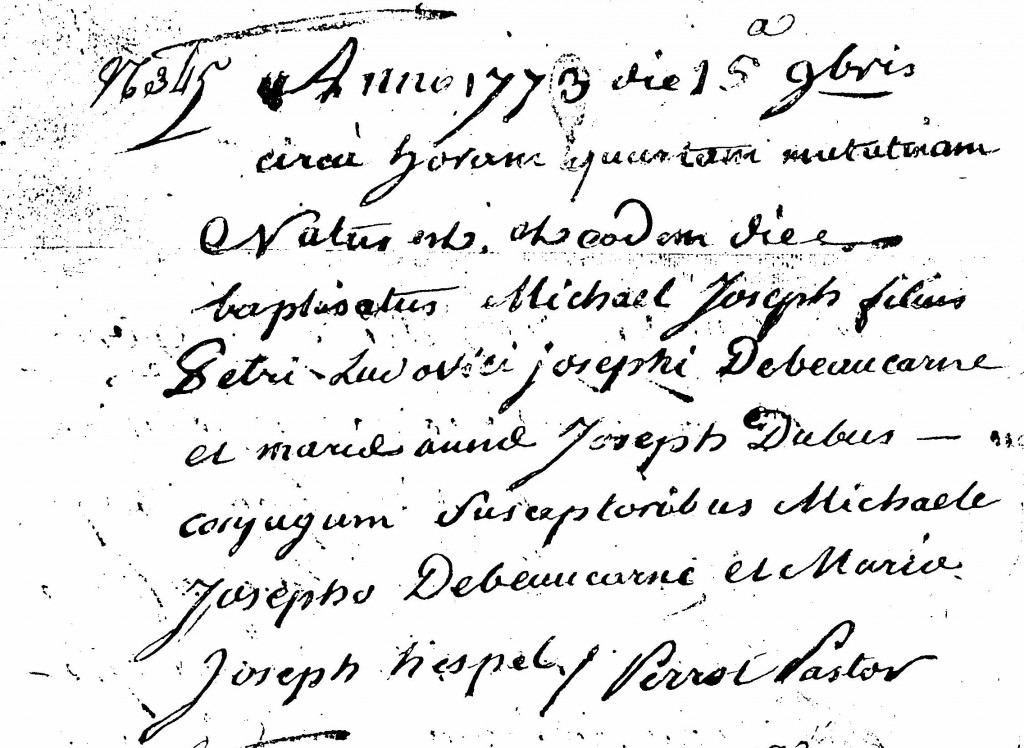 N°345 Anno 1773 die 15a 9bris
circa horam quartam matutinam
Natus est, et eodem die
baptisatus Michael Joseph filius
Petri Ludovici josephi Debeaucarne
et mariæ annæ Joseph Dubus —
conjugum Susceptoribus Michaele
Josepho Debeaucarne et Maria
Joseph hespel / Perrot Pastor